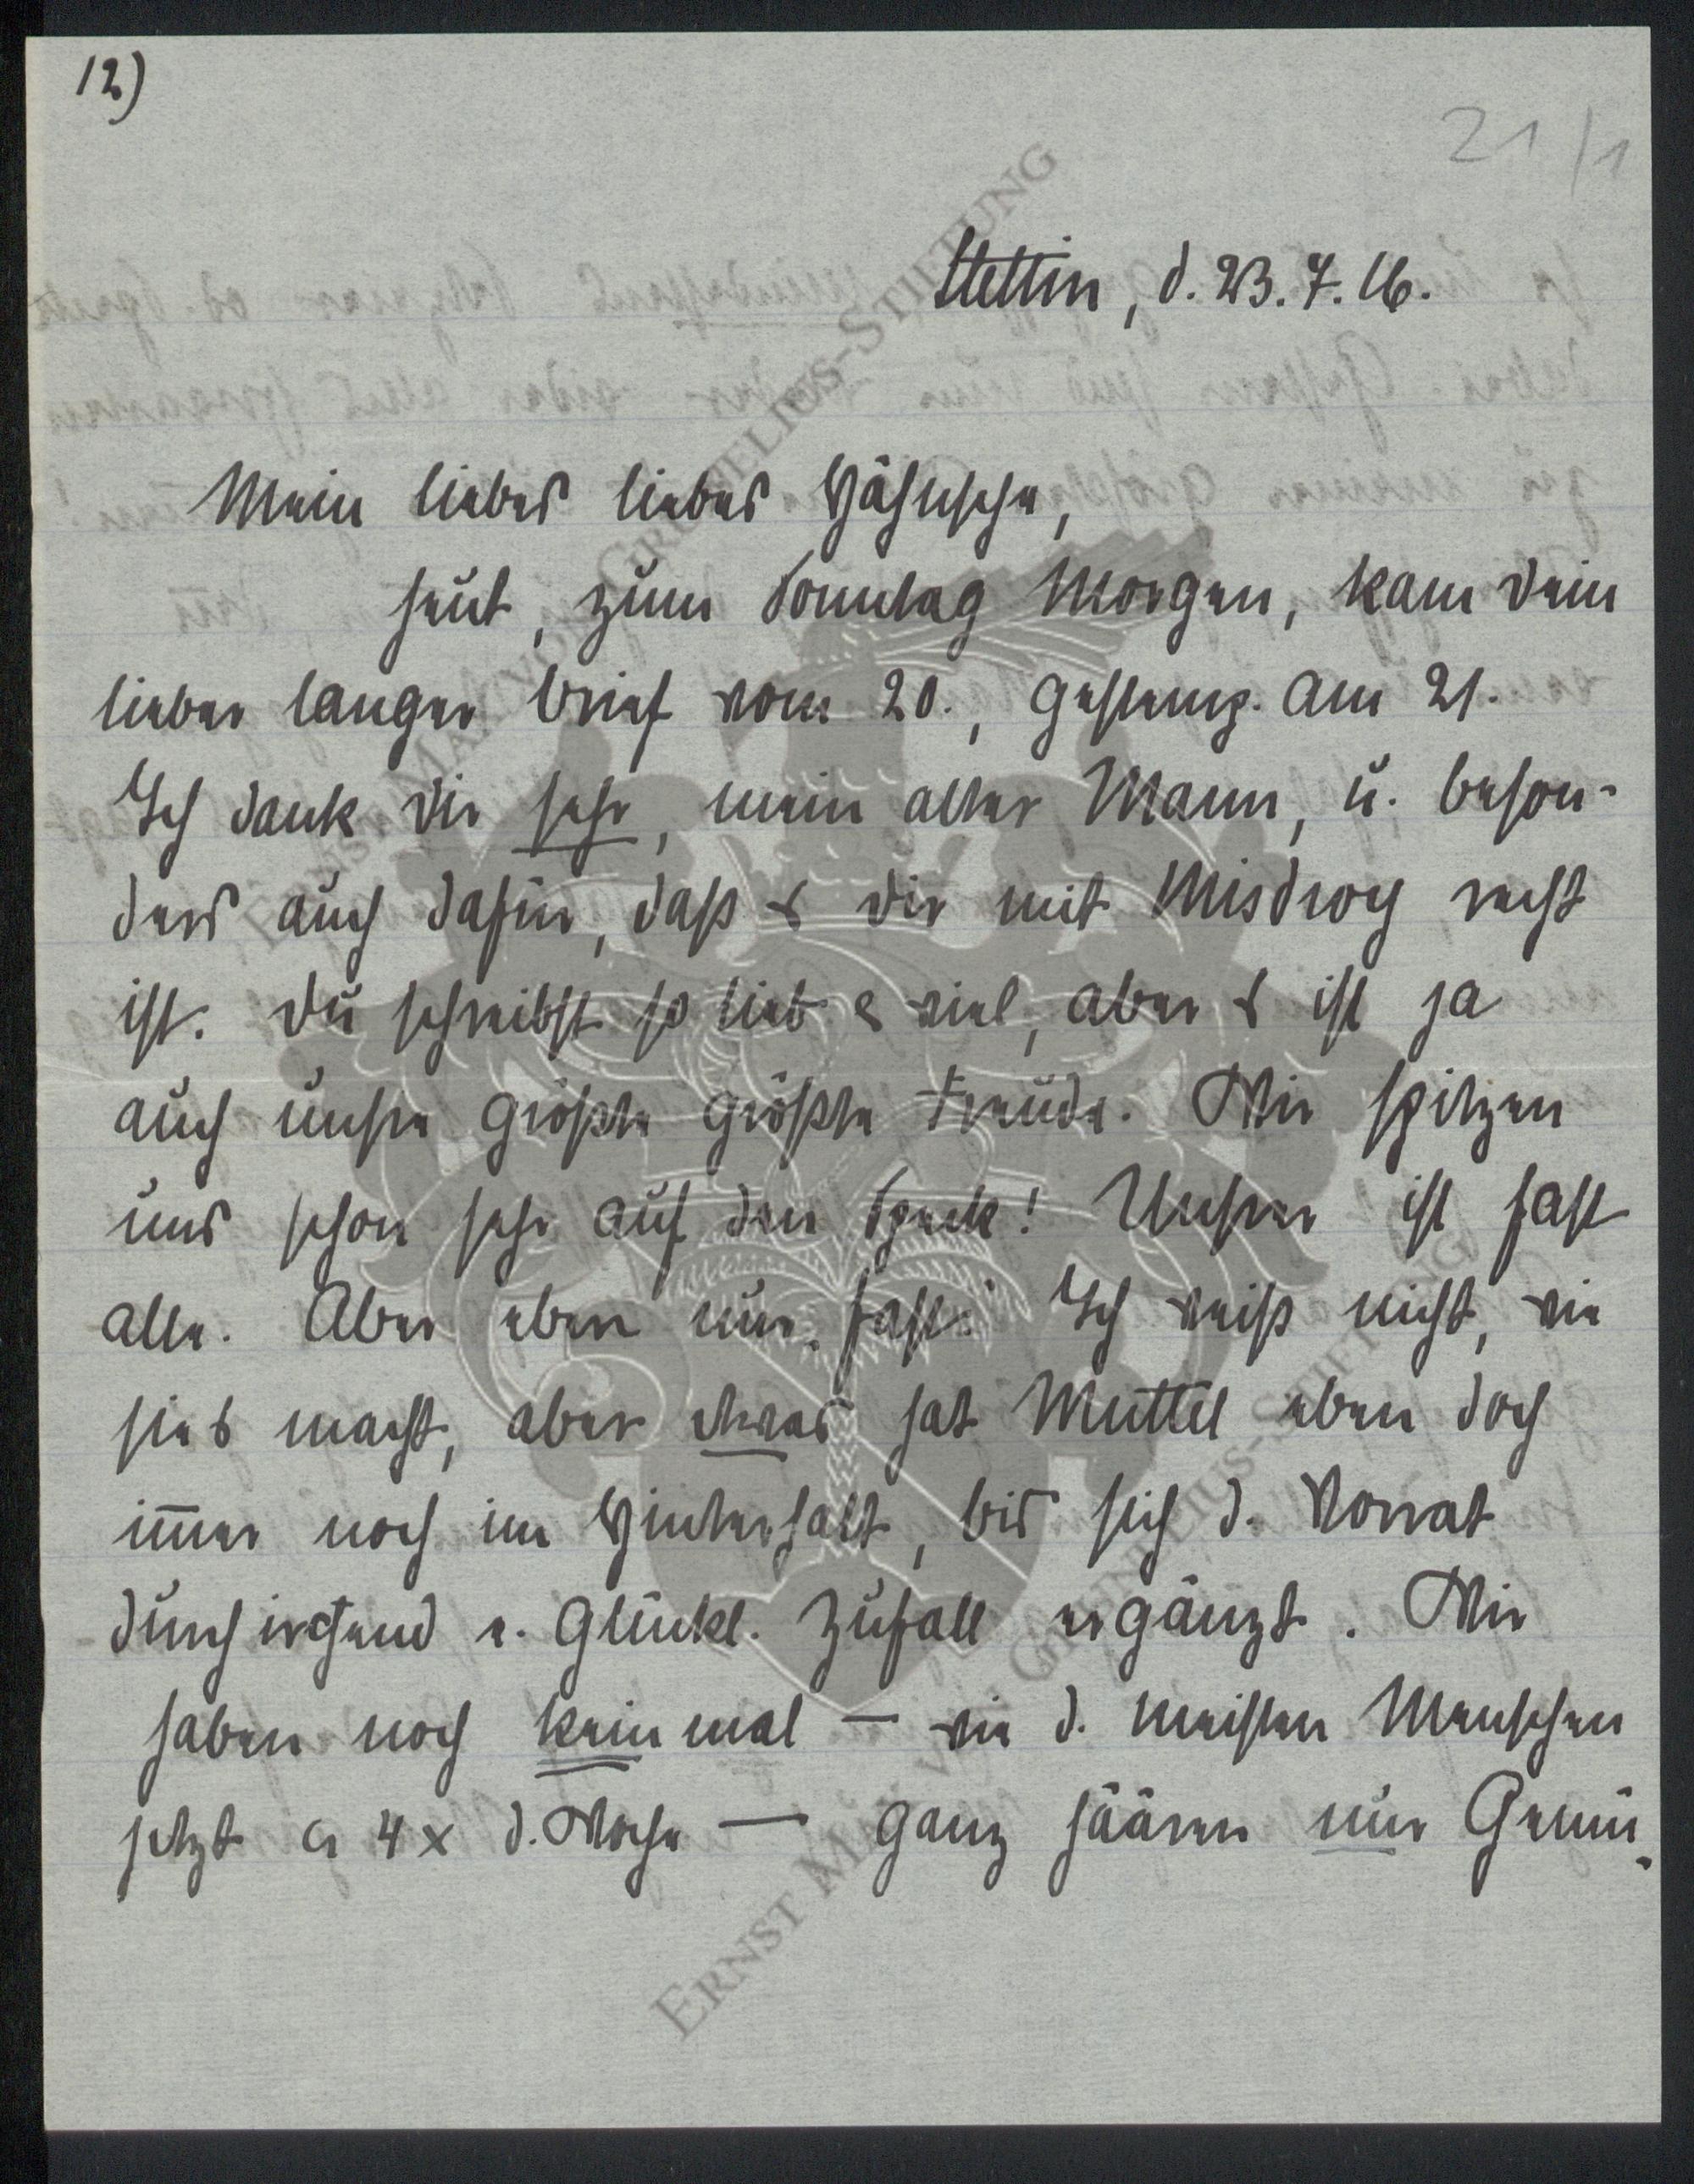 12)
21/1
Stettin, d. 23.7.16.
Mein liebes liebes Hähnsche,
heut, zum Sonntag Morgen, kam dein
lieber langer Brief vom 20., gestemp. am 21.
Ich dank dir sehr, mein alter Mann, u. beson-
ders auch dafür, daß es dir mit Misdroy recht
ist. Du schreibst so lieb & viel, aber es ist ja
auch unsre größte größte Freude. Wir spitzen
uns schon sehr auf den Speck! Unsrer ist fast
alle. Aber eben nur „fast." Ich weiß nicht, wie
sie's macht, aber etwas hat Muttel eben doch
im̄er noch im Hinterhalt, bis sich d. Vorrat
durch irgend e. glückl. Zufall ergänzt. Wir
haben noch keinmal — wie d. meisten Menschen
jetzt 4 x d. Woche — ganz nur Gemü-
ERNST MAX VON GRUNELIUS-STIFTUNG
ERNST MAX VON GRUNELIUS-STIFTUNG